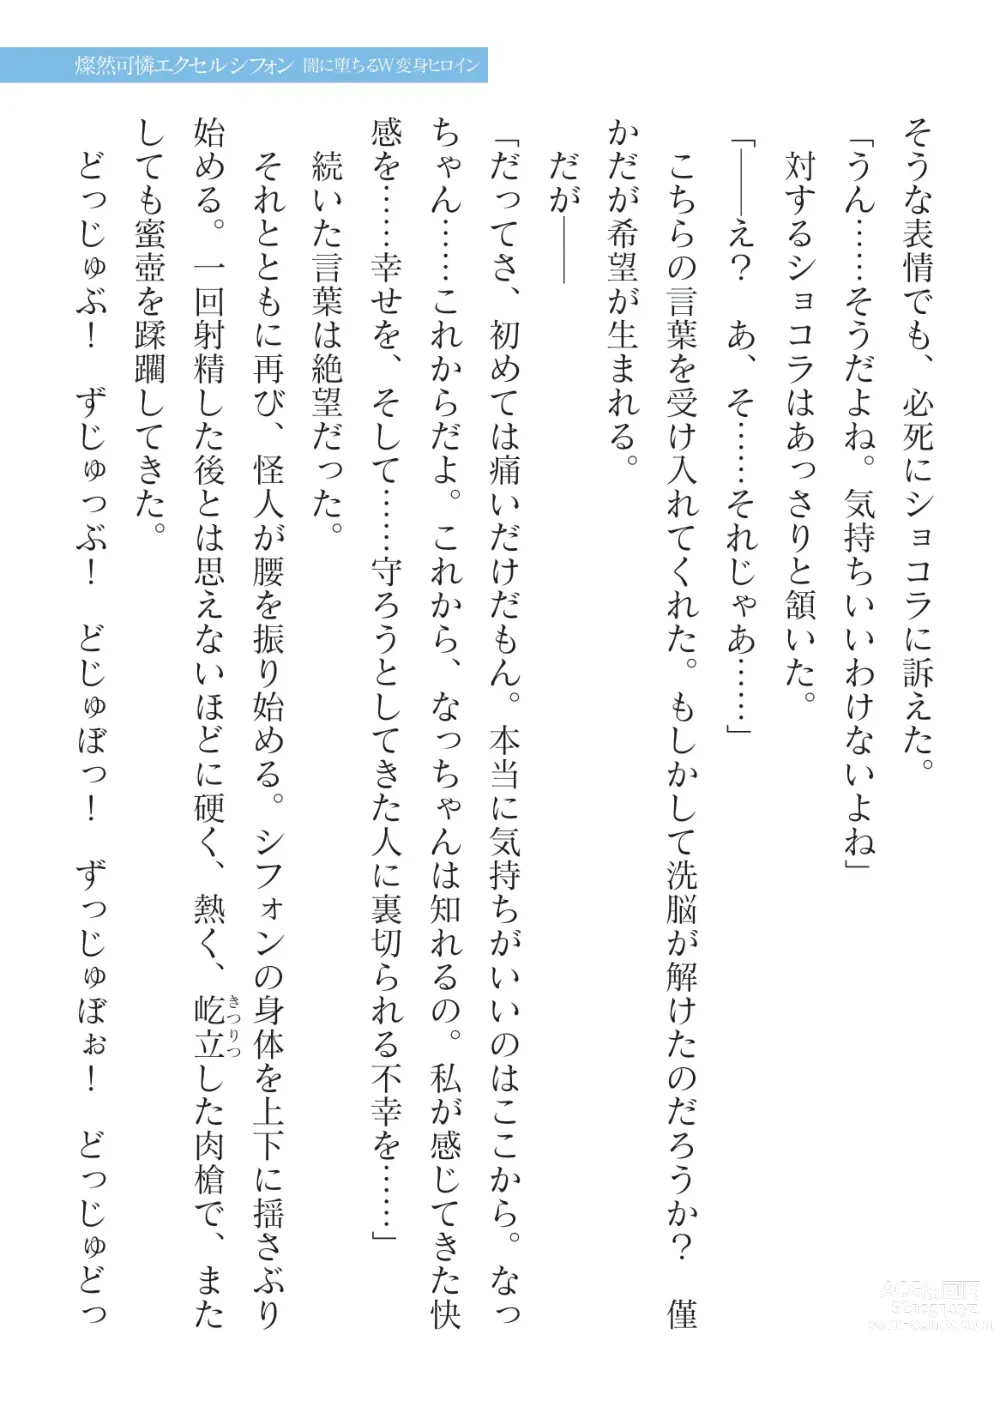 燦然可憐エクセルシフォン 闇に堕ちるW変身ヒロイン
そうな表情でも、必死にショコラに訴えた。
「うん……そうだよね。気持ちいいわけないよね」
対するショコラはあっさりと頷いた。
「――え？　あ、そ……それじゃあ……」
こちらの言葉を受け入れてくれた。もしかして洗脳が解けたのだろうか？　僅
かだが希望が生まれる。
だが――
「だってさ、初めては痛いだけだもん。本当に気持ちがいいのはここから。なっ
ちゃん……これからだよ。これから、なっちゃんは知れるの。私が感じてきた快
感を……幸せを、そして……守ろうとしてきた人に裏切られる不幸を……」
続いた言葉は絶望だった。
それとともに再び、怪人が腰を振り始める。シフォンの身体を上下に揺さぶり
始める。一回射精した後とは思えないほどに硬く、熱く、屹立した肉槍で、また
きつりつ
しても蜜壺を蹂躙してきた。
どっじゅぶ！　ずじゅっぶ！　どじゅぼっ！　ずっじゅぼぉ！　どっじゅどっ